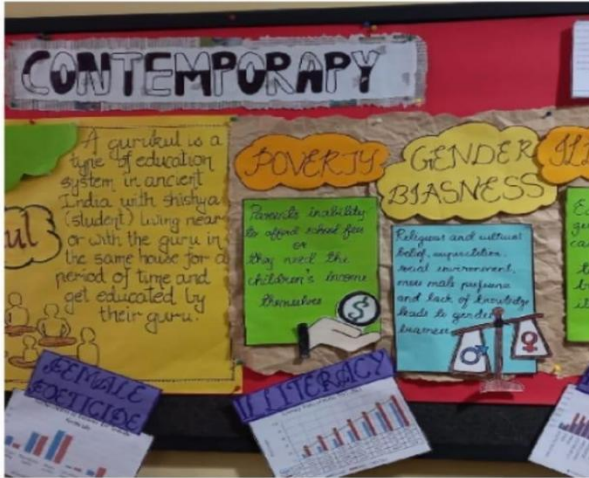 CONTEMPORAPY
ul
A gurukul is a
type of education
system in ancient
India with shishya
(student) living near
or with the guru in
the same house for a
period of time and
get educated by
their guru.
POVERTY
Parents inability
to afford school fee
or
they need the
children's income
themselves
$
GENDER
BIASNESS
Religious and cultural
belief, superstition,
social environment,
more male
and lack of knowledge
leads to gender
biasness
FEMALE
FETICIDE
ILLITERACY